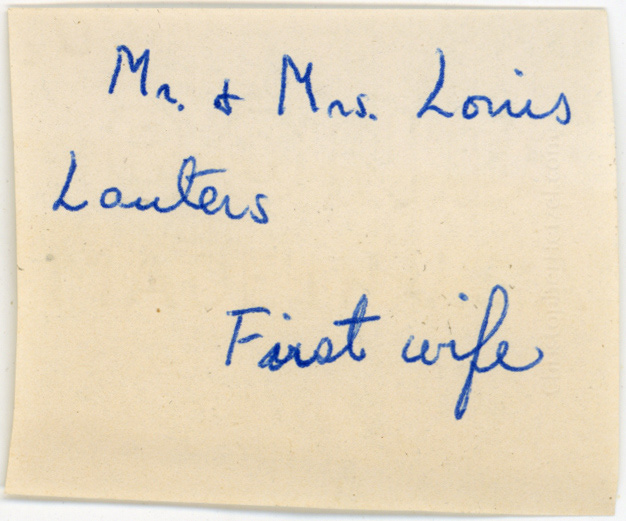 Mr. & Mrs. Louis
Lauters
First wife